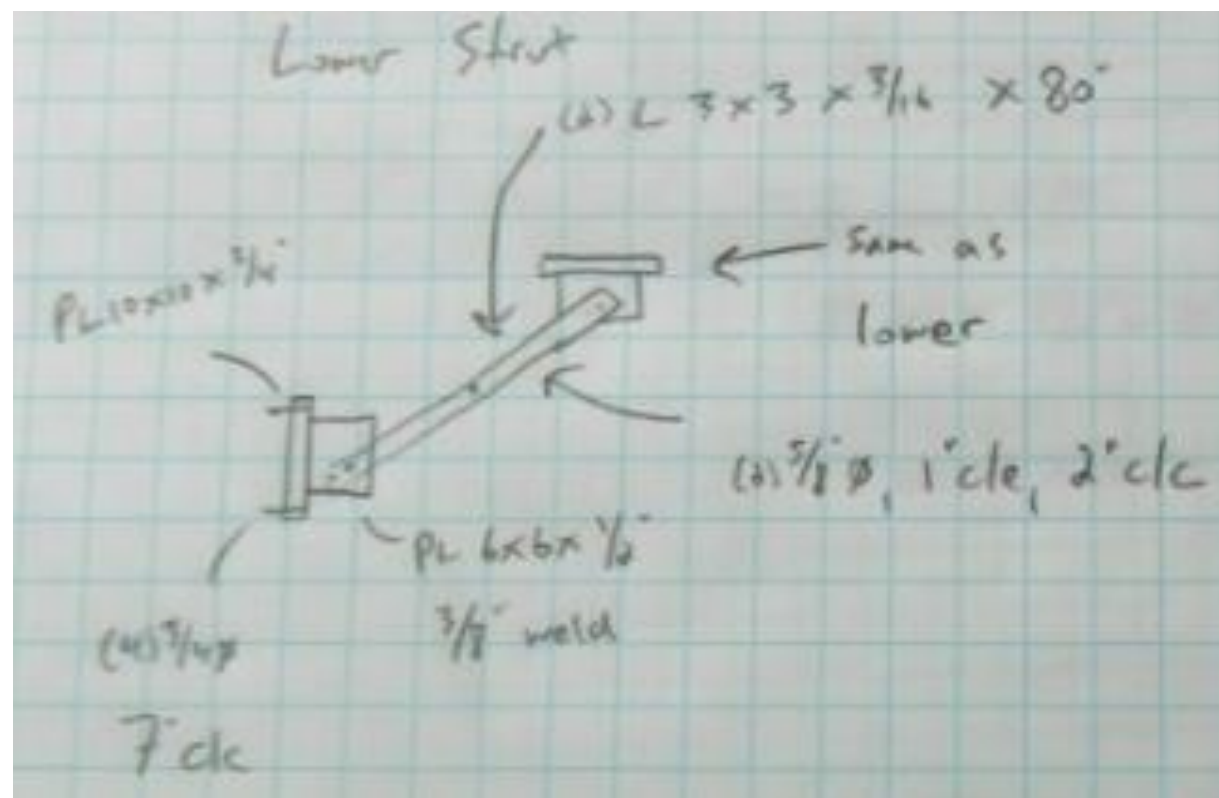 Lower Strut
(2) L 3 x 3 x 3/16 x 80"
Sam as
lower
PL 10x10 x 3/4"
(2) 5/8" ø, 1" c/e, 2" c/c
PL 6x6x 1/2"
3/8" weld
(4) 3/4 ø
7" c/c